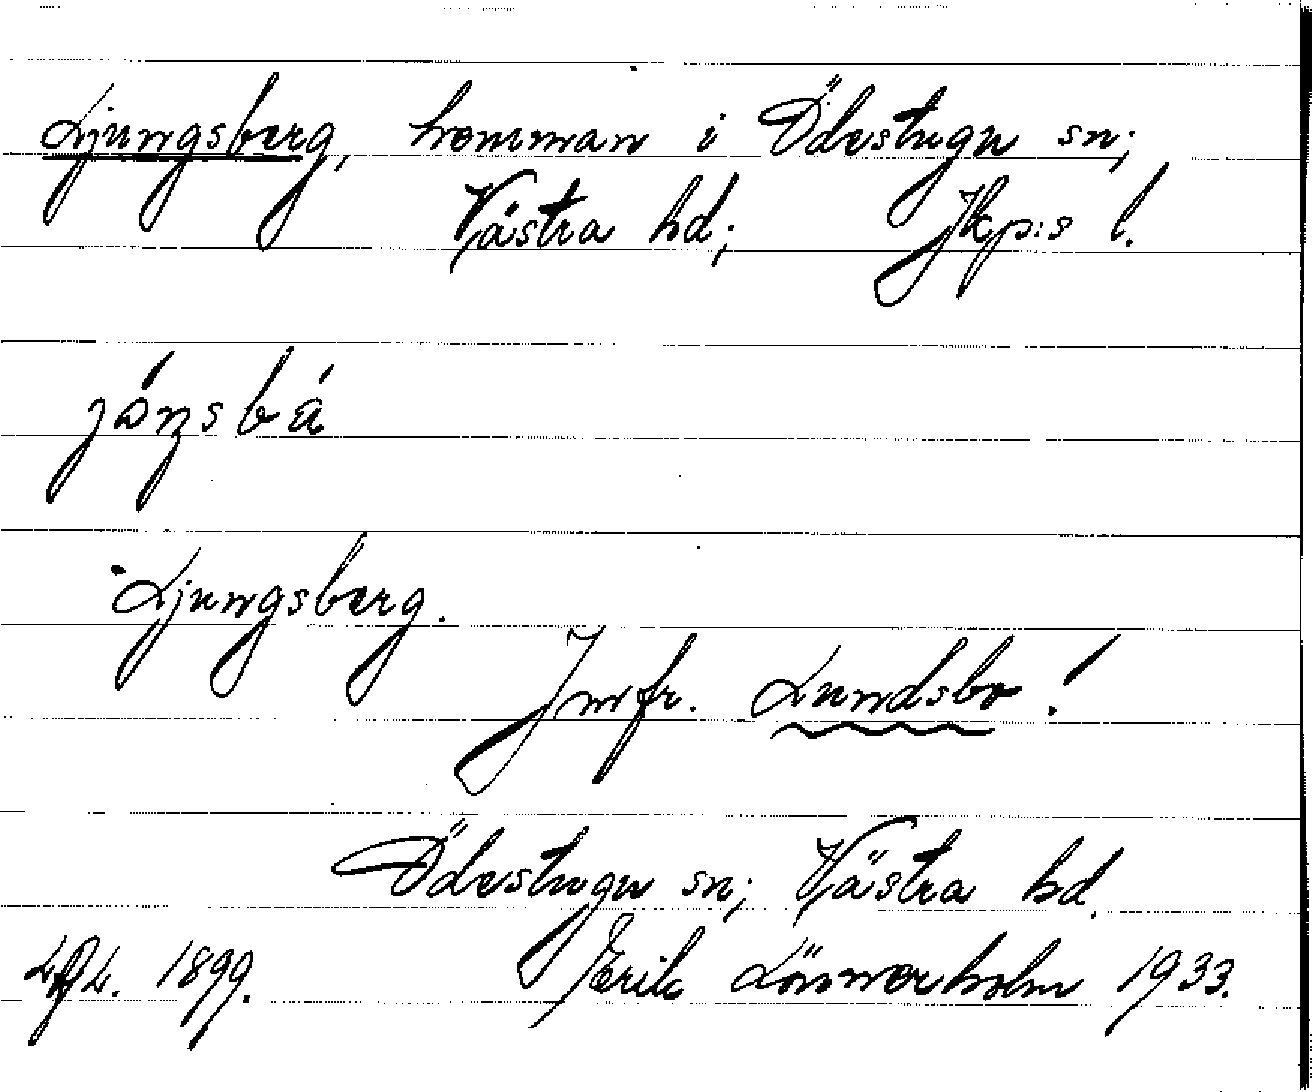 Ljungsberg, hemman i Ödestugu sn;
Västra hd; Jkp:s l.
Ljungsberg.
Jmfr. Lundsbo!
Ödestugu sn; Västra hd.
1899. Erik Lönnerholm 1933.